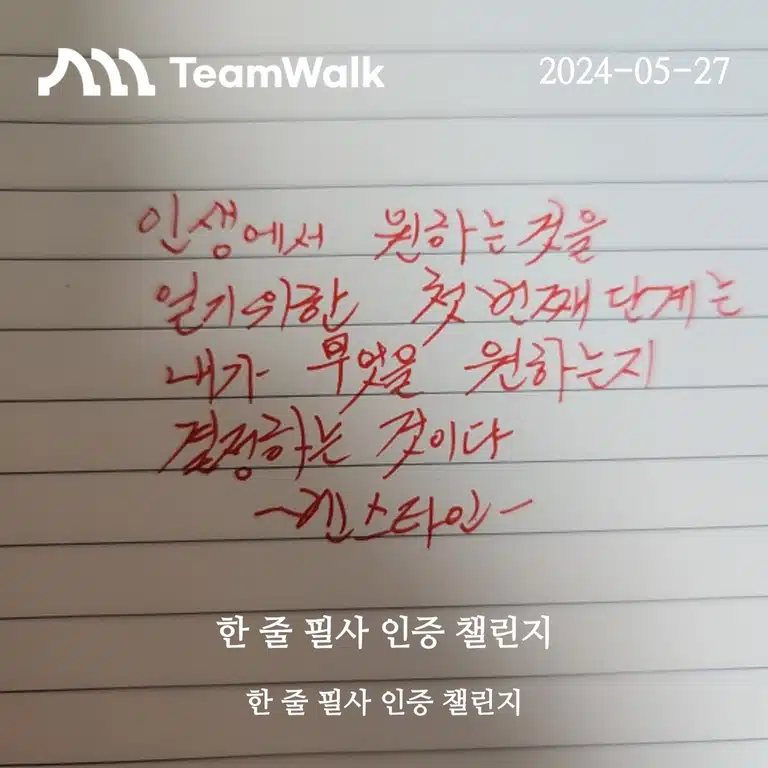 TeamWalk
2024-05-27
인생에서 원하는 것을
얻기 위한 첫 번째 단계는
내가 무엇을 원하는지
결정하는 것이다
-벤스타인-
한 줄 필사 인증 챌린지
한 줄 필사 인증 챌린지